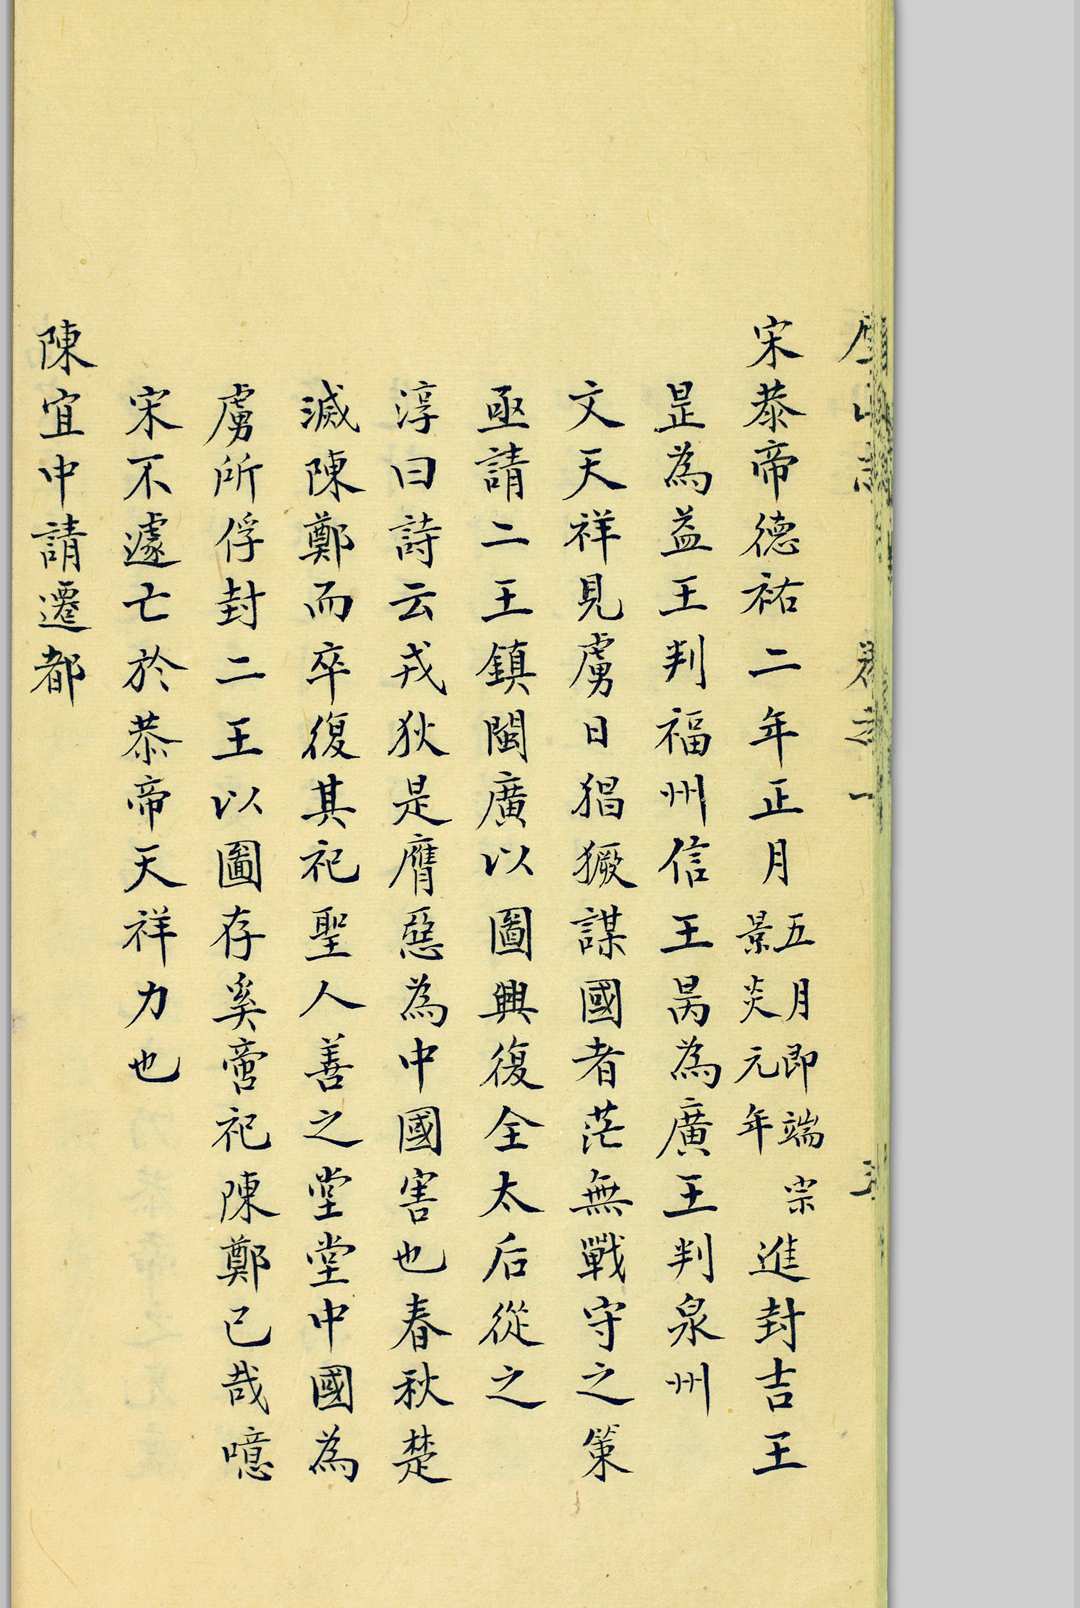 厓山志 卷之一
宋恭帝德祐二年正月五月即端宗景炎元年進封吉王
昰為益王判福州信王昺為廣王判泉州
文天祥見虜日猖獗謀國者茫無戰守之策
亟請二王鎮閩廣以圖興復全太后從之
淳曰詩云戎狄是膺惡為中國害也春秋楚
滅陳鄭而卒復其祀聖人善之堂堂中國為
虜所俘封二王以圖存奚啻祀陳鄭已哉噫
宋不遽亡於恭帝天祥力也
陳宜中請遷都